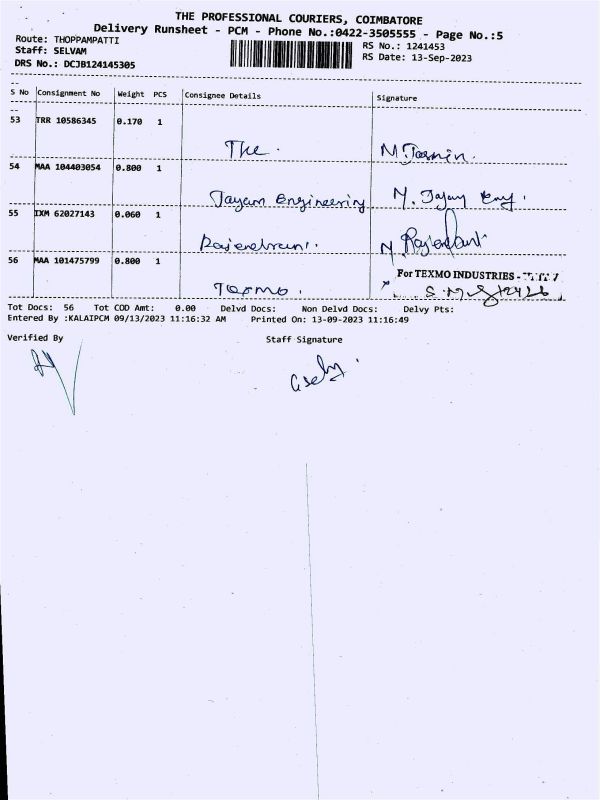 THE PROFESSIONAL COURIERS, COIMBATORE
Delivery Runsheet - PCM - Phone No.:0422-3505555 - Page No.:5
Route: THOPPAMPATTI
RS No.: 1241453
Staff: SELVAM
RS Date: 13-Sep-2023
DRS No.: DCJB124145305
S No Consignment No Weight PCS Consignee Details Signature
53 TRR 10586345 0.170 1
The. M.
54 MAA 104403054 0.800 1
Jayam Engineering
55 IXM 62027143 0.060 1
Rajendran.
56 MAA 101475799 0.800 1
For TEXMO INDUSTRIES -
Texmo.
Tot Docs: 56 Tot COD Amt: 0.00 Delvd Docs: Non Delvd Docs: Delvy Pts:
Entered By :KALAIPCM 09/13/2023 11:16:32 AM Printed On: 13-09-2023 11:16:49
Verified By Staff Signature